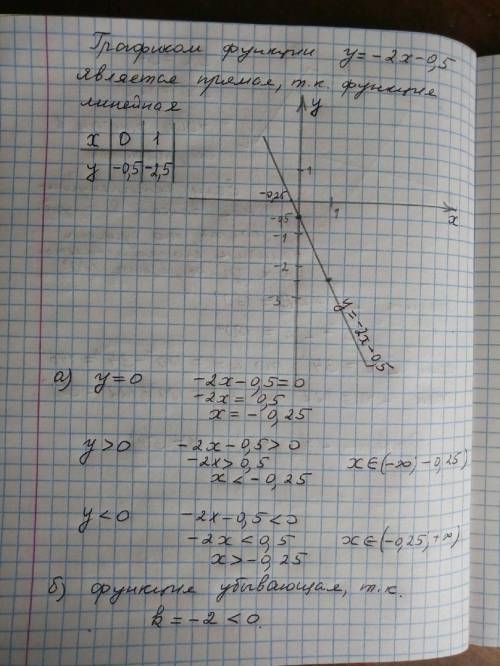 Графиком функции y = -2x-0,5
является прямая, т.к. функция
линейная
y
x 0 1
y -0,5 -2,5
1
-0,25
-0,5
1
x
-1
-2
-3
y=-2x-0,5
а) y=0 -2x-0,5=0
-2x= 0,5
x = -0,25
y>0 -2x-0,5>0
-2x>0,5 x∈(-∞; -0,25)
x < -0,25
y<0 -2x-0,5<0
-2x<0,5 x∈(-0,25; +∞)
x>-0,25
б) функция убывающая, т.к.
k = -2 < 0.